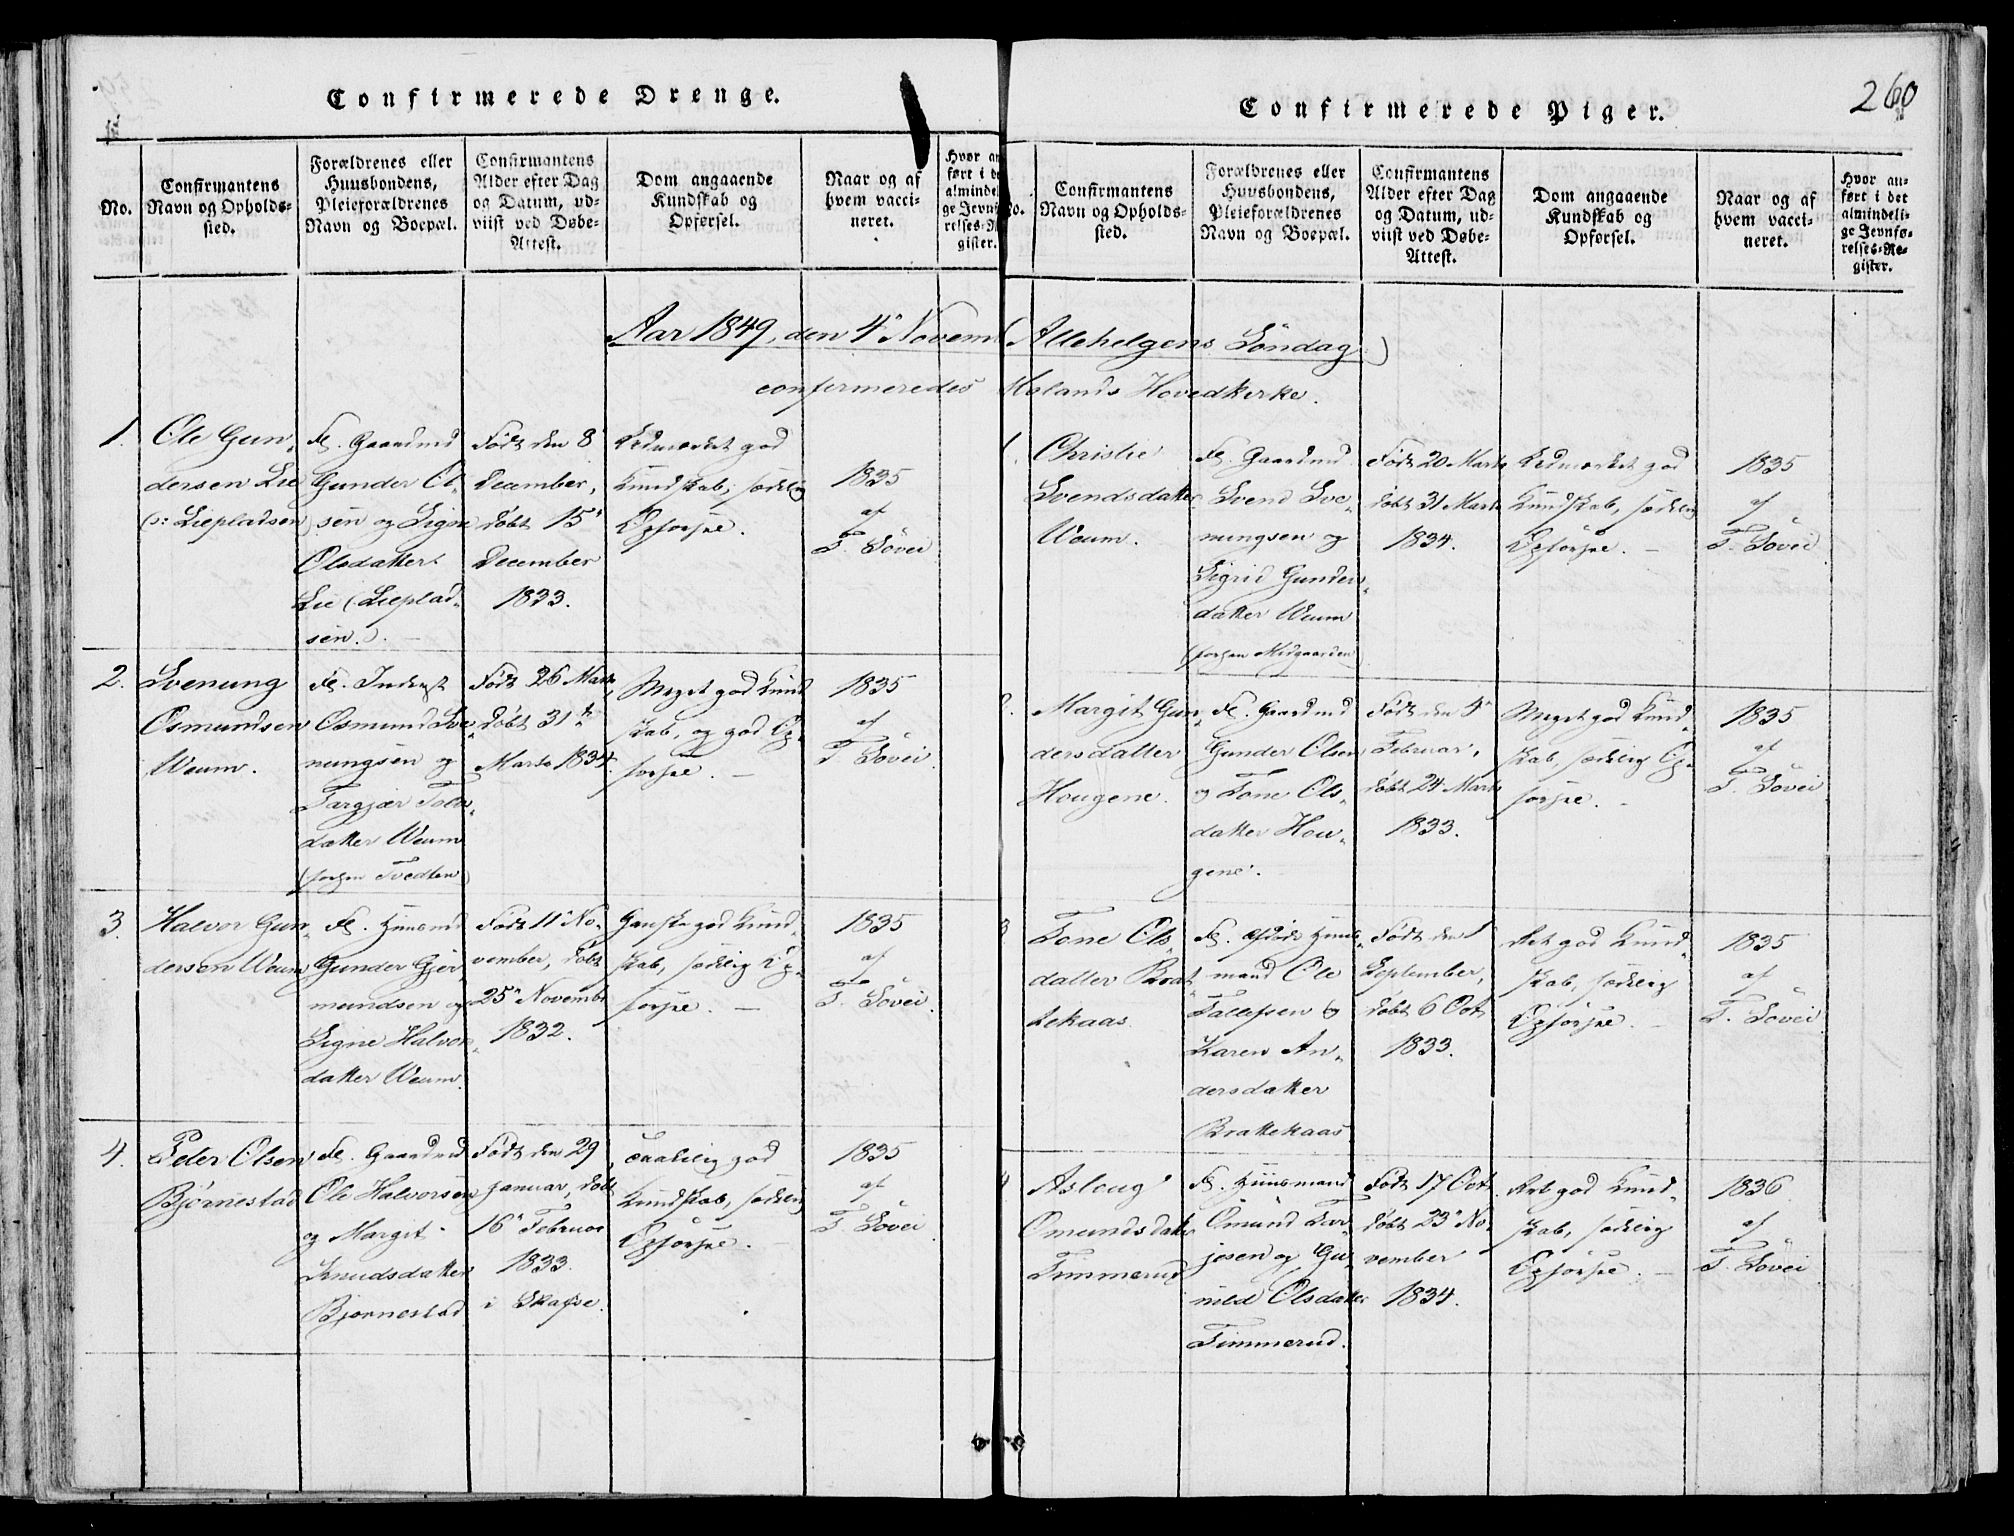 Confirmerede Drenge.
No.
Confirmantens
Navn og Opholds-
sted.
Forældrenes eller
Huusbondens,
Pleieforældrenes
Navn og Boepæl.
Confirmantens
Alder efter Dag
og Datum, ud-
viist ved Døbe-
Attest.
Dom angaaende
Kundskab og
Opførsel.
Naar og af
hvem vacci-
neret.
Hvor an
ført i de
almindel
ge Jevnf
relses-R
gister.
Aar 1849, den 4de Novemb
confirmeredes
1.
Ole Gun-
dersen Lie
(ɔ: Liepladsen)
Fl. Gaardmd
Gunder Ol-
sen og Signe
Olsdatter
Lie (Lieplad-
sen.)
Født den 8
December,
døbt 15
December
1833.
Udmærket god
Kundskab, sædelig
Opførsel.
1835
af
T. Lövei
2.
Svenung
Osmundsen
Weum.
Fl. Inderst
Osmund Sve-
nungsen og
Targjær
datter Weum
Tvedten)
Født 26 Marts,
døbt 31te
Marts 1834.
Meget god Kund-
skab, og god Op-
førsel.
1835
af
T. Lövei
3.
Halvor Gun-
dersen Weum
Fl. Huusmd
Gunder Gjer-
mundsen og
Signe Halvors-
datter Weum.
Født 11 No-
vember, døbt
25 Novembr
1832.
Ganske god Kund-
skab, sædelig Op-
førsel.
1835
af
T. Lövei.
4.
Peder Olsen
Bjørnestad
Fl. Gaardmd
Ole Halvorsen
og Margit
Knudsdatter
Bjørnestad
Født den 29
Januar, døbt
16 Februar
1833
i Skafse.
Taalelig god
Kundskab, sædelig
Opførsel.
1835
af
T. Lövei
260
Confirmerede Piger.
No.
Confirmantens
Navn og Opholds-
sted.
Forældrenes eller
Huusbondens,
Pleieforældrenes
Navn og Boepæl.
Confirmantens
Alder efter Dag
og Datum, ud-
viist ved Døbe-
Attest.
Dom angaaende
Kundskab og
Opførsel.
Naar og af
hvem vacci-
neret.
Hvor an-
ført i det
almindeli-
ge Jevnfø-
relses-Re-
gister.
(Allehelgens Söndag)
Molands Hovedkirke.
1.
Christie
Svendsdatter
Weum.
Fl. Gaardmd
Svend Sve-
nungsen og
Sigrid Gunders-
datter Weum
Midgaarden)
Født 20 Marts
døbt 31 Marts
1834.
Udmærket god
Kundskab, sædelig
Opførsel.
1835
af
T. Lövei
2.
Margit Gun-
dersdatter
Hougene.
Fl. Gaardmd
Gunder Olsen
og Tone Ols-
datter Hou-
gene.
Født den 4
Februar,
døbt 24 Marts
1833.
Meget god Kund-
skab, sædelig Op-
førsel.
1835
af
T. Lövei
3
Tone Ols-
datter Brat-
tekaas
Fl. afdøde Huus-
mand Ole
Tallefsen og
Karen An-
dersdatter
Brattekaas
Født den 1
September,
døbt 6 Oct.
1833.
Ret god Kund-
skab, sædelig
Opførsel.
1835
af
T. Lövei
4
Asloug
Omundsdatter
Timmerud
Fl. Huusmand
Omund Tar-
jesen og Gu-
nild Olsdatter
Timmerud.
Født 17 Oct.
døbt 23 No-
vember
1834.
Ret god Kund-
skab, sædelig
Opførsel.
1836
af
T. Lövei